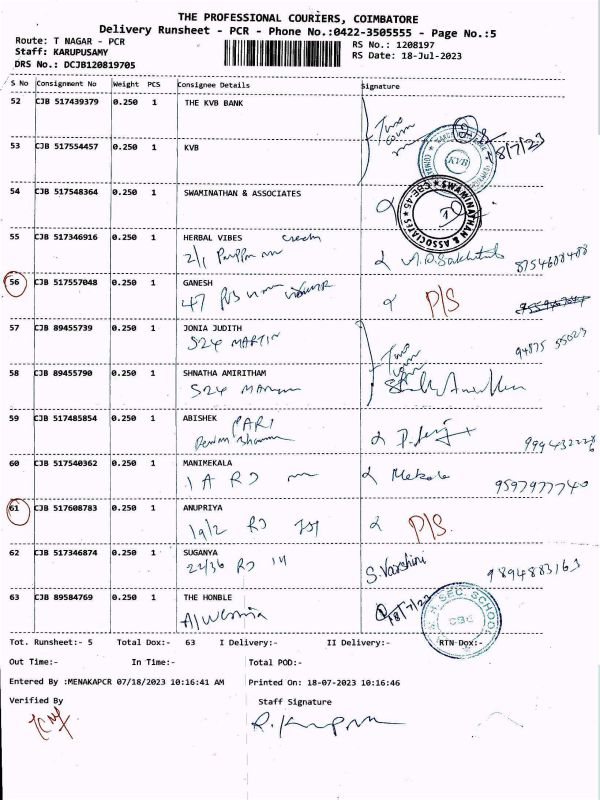 THE PROFESSIONAL COURIERS, COIMBATORE
Delivery Runsheet - PCR - Phone No.:0422-3505555 - Page No.:5
Route: T NAGAR - PCR
Staff: KARUPUSAMY
DRS No.: DCJB120819705
RS No.: 1208197
RS Date: 18-Jul-2023
S No Consignment No Weight PCS Consignee Details Signature
52 CJB 517439379 0.250 1 THE KVB BANK
53 CJB 517554457 0.250 1 KVB
KVB
18/7/23
54 CJB 517548364 0.250 1 SWAMINATHAN & ASSOCIATES
SWAMINATHAN & ASSOCIATES CBE-45
55 CJB 517346916 0.250 1 HERBAL VIBES
2/1
8754608408
56 CJB 517557048 0.250 1 GANESH
47
P/S
57 CJB 89455739 0.250 1 JONIA JUDITH
S24 MARTIN
94875 55023
58 CJB 89455790 0.250 1 SHNATHA AMIRITHAM
S24
59 CJB 517485854 0.250 1 ABISHEK
PARI
60 CJB 517540362 0.250 1 MANIMEKALA
1 A RD
Mekala
9597977740
61 CJB 517608783 0.250 1 ANUPRIYA
19/2 RD
P/S.
62 CJB 517346874 0.250 1 SUGANYA
22/36 RD
S. Varshini
9894883163
63 CJB 89584769 0.250 1 THE HONBLE
18/7/23
H. SEC. SCHOOL
CBE
Tot. Runsheet:- 5 Total Dox:- 63 I Delivery:- II Delivery:- RTN Dox:-
Out Time:- In Time:- Total POD:-
Entered By :MENAKAPCR 07/18/2023 10:16:41 AM Printed On: 18-07-2023 10:16:46
Verified By Staff Signature